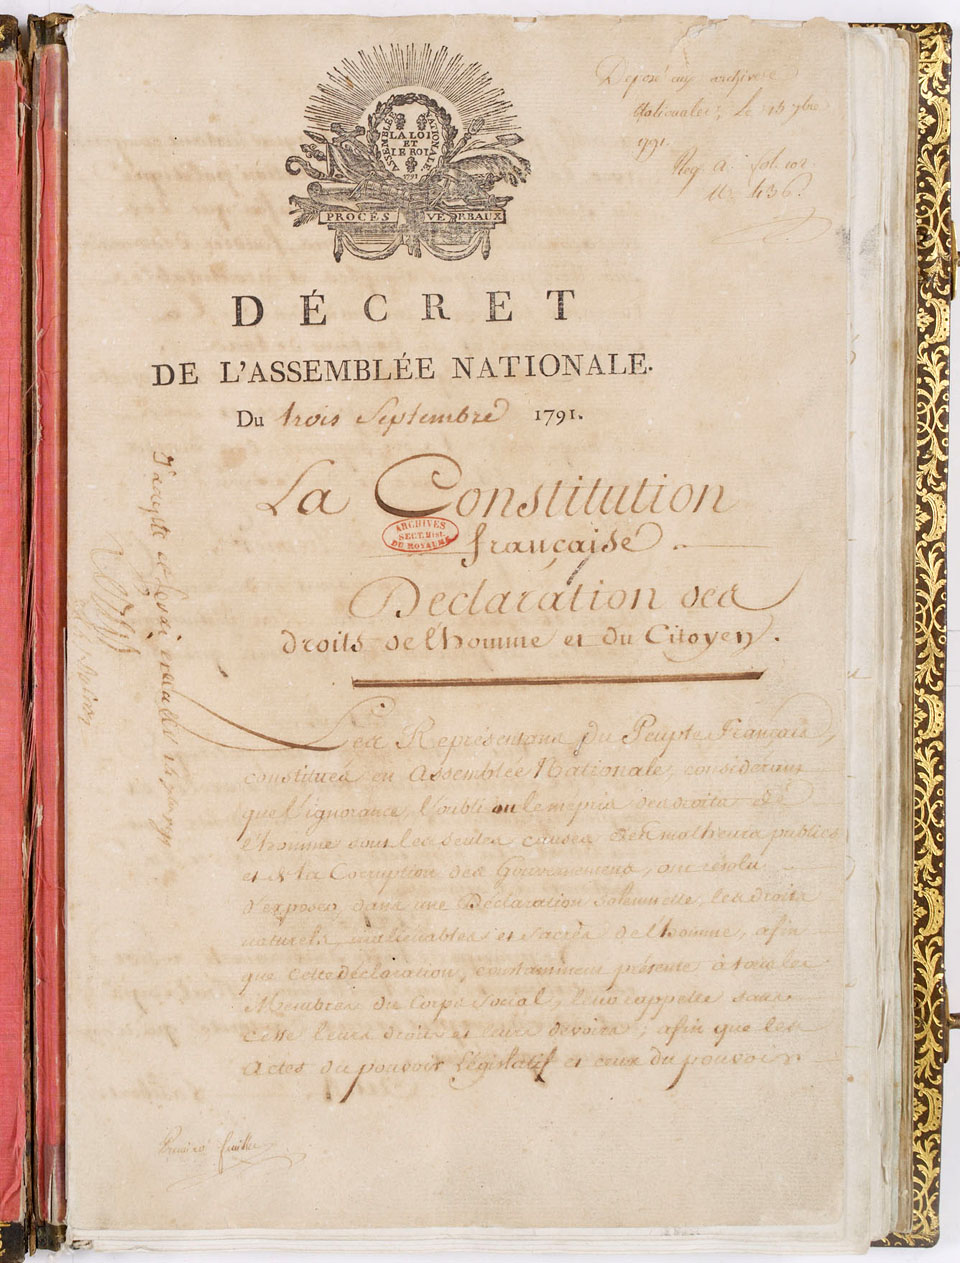 ASSEMBLÉE NATIONALE
LA LOI
ET
LE ROI
1791
PROCÈS VERBAUX
Déposé aux archives
Nationales, Le 15 7bre
1791.
Reg. A. fol. 101
N.° 436.
DÉCRET
DE L'ASSEMBLÉE NATIONALE.
Du trois Septembre 1791.
La Constitution
française.
ARCHIVES
SECT. HIST.
DU ROYAUME
Déclaration des
droits de l'homme et du Citoyen.
J'accepte et ferai exécuter 14 7bre 1791
Les Représentans du Peuple Français,
constitués en Assemblée Nationale, considérant
que l'ignorance, l'oubli ou le mépris des droits de
l'homme sont les seules causes des malheurs publics
et de la Corruption des Gouvernemens, ont résolu
d'exposer dans une Déclaration solennelle, les droits
naturels, inaliénables et sacrés de l'homme, afin
que cette déclaration, constamment présente à tous les
Membres du Corps Social, leur rappelle sans
cesse leurs droits et leurs devoirs ; afin que les
Actes du pouvoir Législatif et ceux du pouvoir
feuille